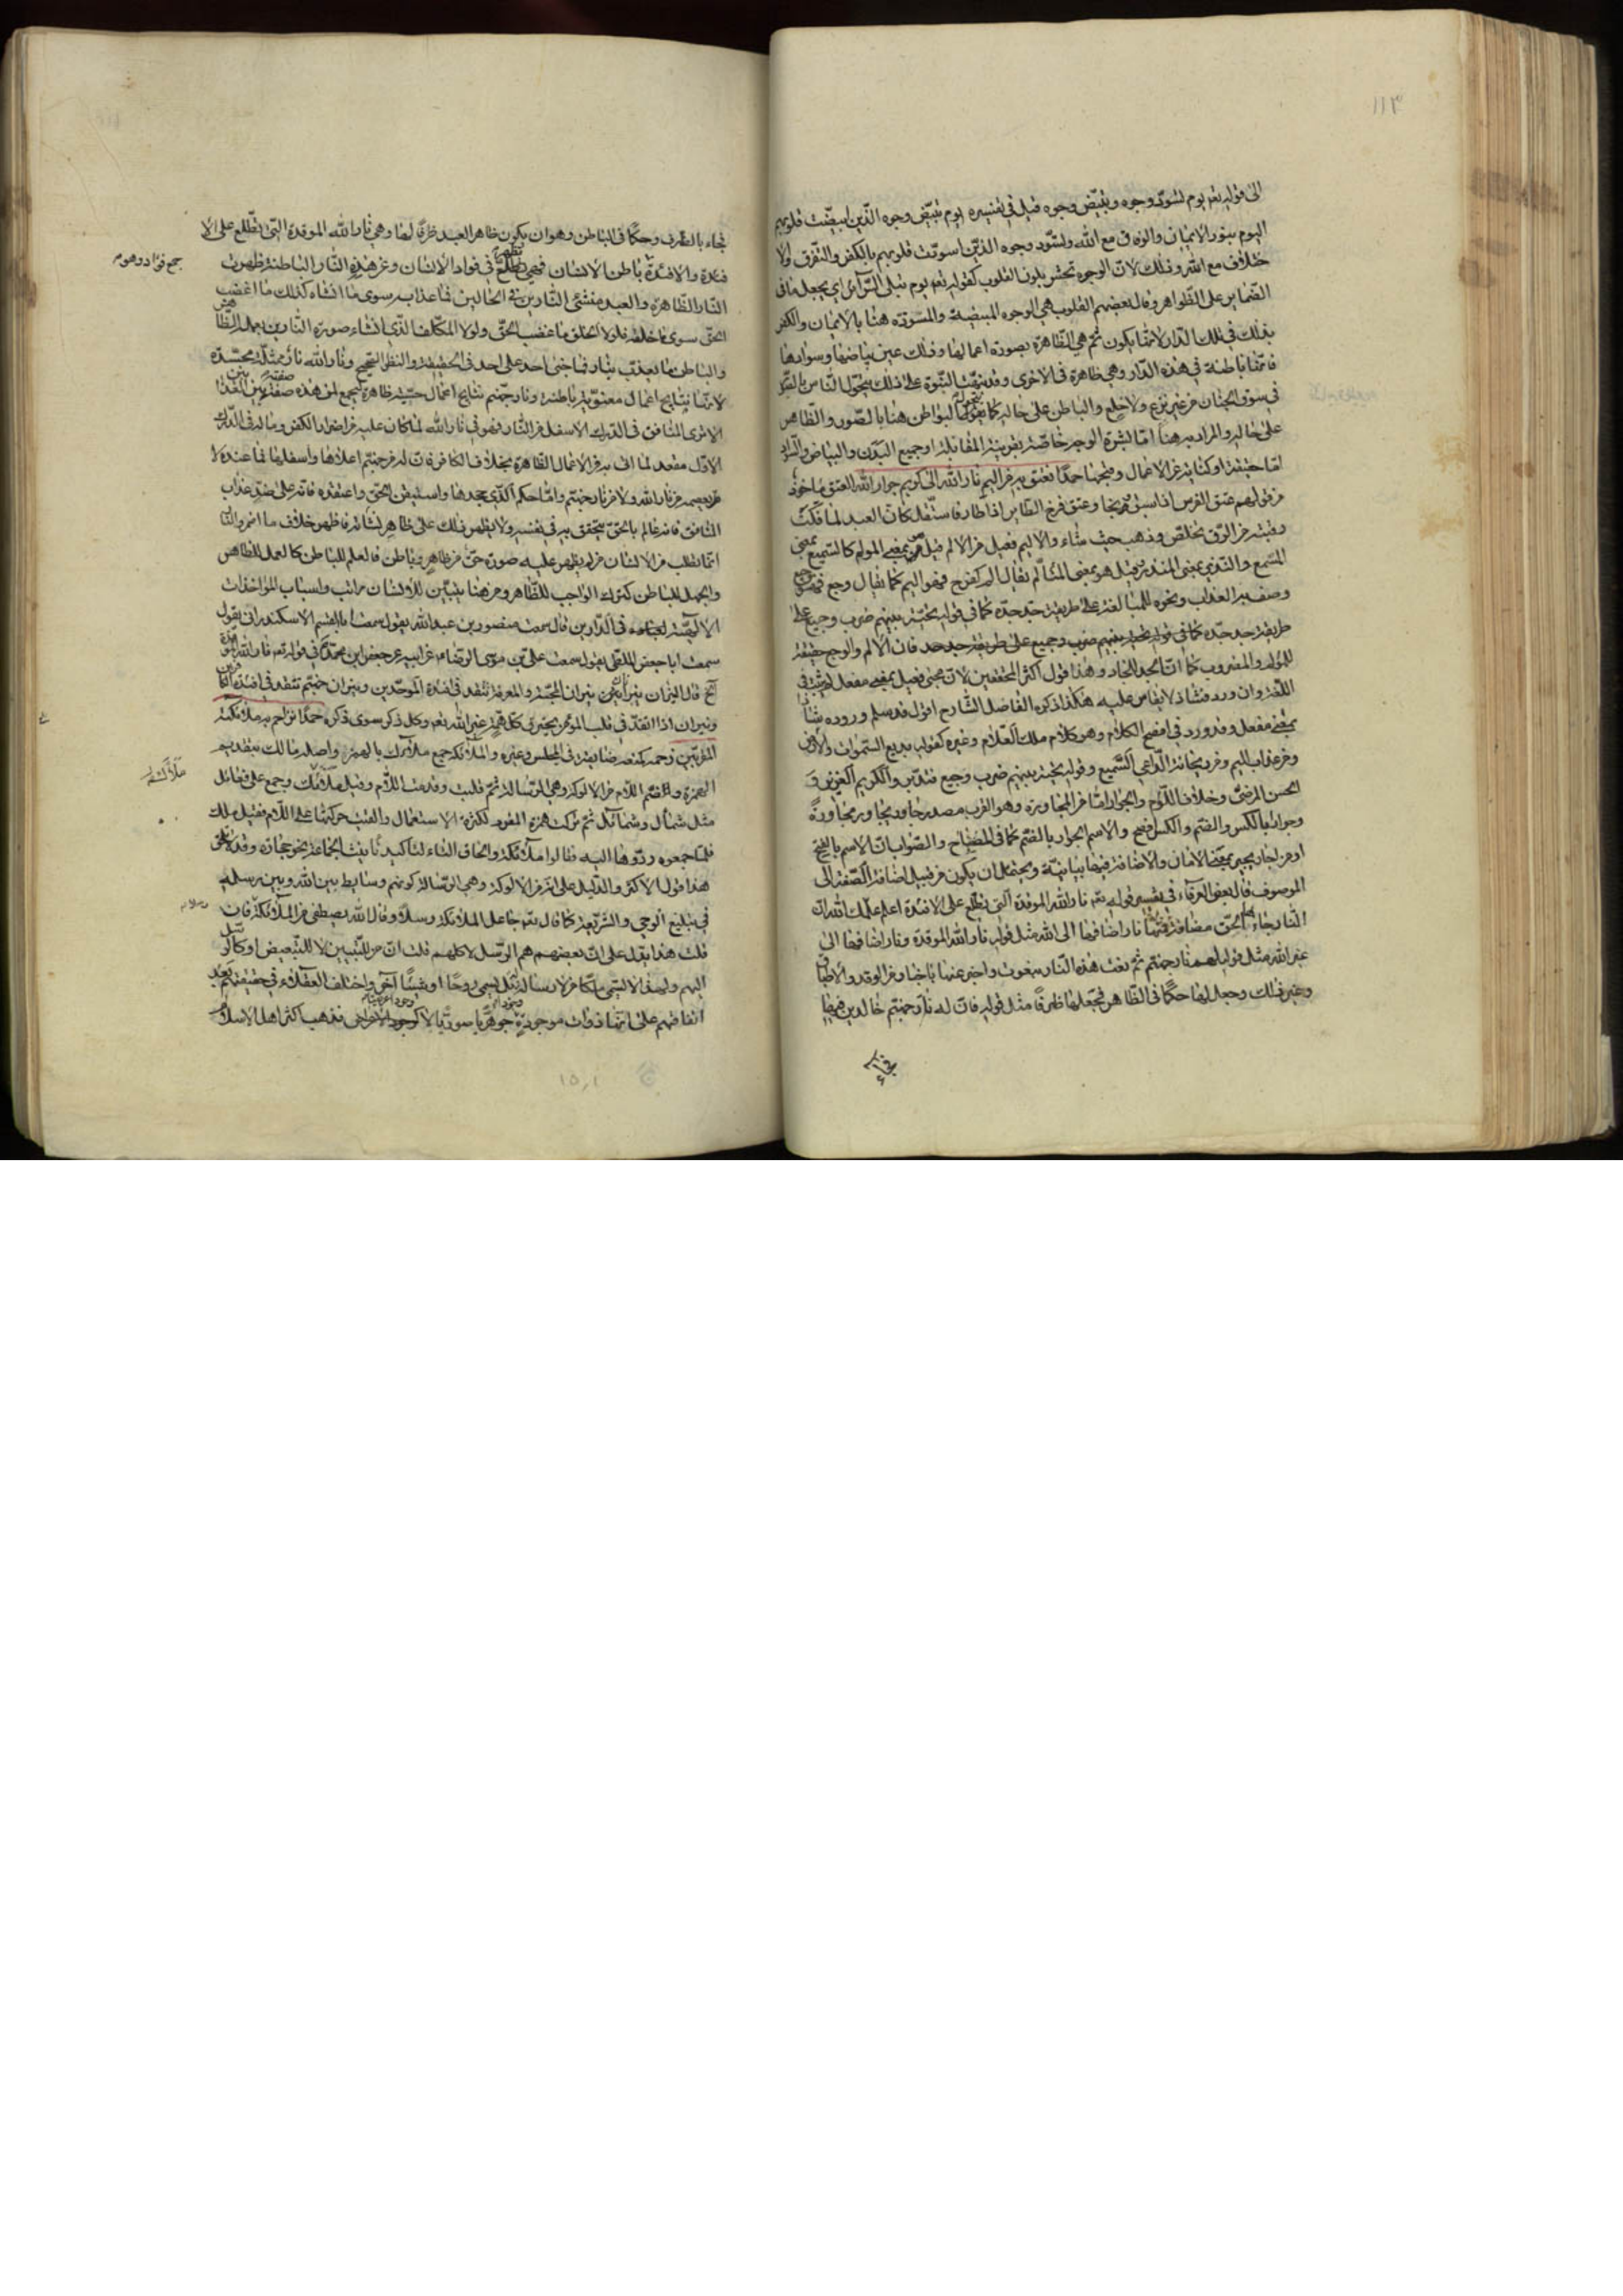 ١١٣
الى قوله تعم يوم تسودّ وجوه وتبيّض وجوه قيل في تفسيره يوم تبيّض وجوه الّذين ابيضّت قلوبهم
اليوم بنور الايمان والوفاق مع الله وتسودّ وجوه الذين اسودّت قلوبهم بالكفر والتفرق ولا
خلاف مع الله وذلك لان الوجوه تحشر بلون القلوب كقوله تعم يوم تبلى السّرآئر اي يجعل ما في
الضماير على الظواهر وقال بعضهم القلوب هي الوجوه المبيضة والمسودّة هنا بالايمان والكفر
بذلك في تلك الدّار لانها يكون ثم هي الظاهرة بصورة اعمالها وذلك عين بياضها وسوادها
فانها باطنة في هذه الدّار وهي ظاهرة في الاخرى وقد نبهت النبوّة على ذلك بتحوّل النّاس بالصّور
في سوق الجنان من غير نزع ولا خلع والباطن على حاله كما البواطن هنا بالصّور والظّاهر
على حاله والمراد به هنا امّا بشرة الوجه خاصّة بقرينة المقابلة او جميع البدن والبياض والسّواد
امّا حقيقة او كناية عن الاعمال ونجحها حمدًا نعتق به من اليم نار الله الى كريم جوار الله العتق ماخوذ
من قولهم عتق الفرس اذا سبق ونجا وعتق فرخ الطّاير اذا طار فاستقل كانّ العبد لما فكّت
رقبته من الرّق تخلّص وذهب حيث شاء والاليم فعيل من الالم قيل هو بمعنى المولم كالسّميع بمعنى
المسمع والنّذير بمعنى المنذر وقيل هو بمعنى المتألّم يقال الم كفرح فهو اليم كما يقال وجع فهو وجيع
وصف به العذاب ونحوه للمبالغة على طريقة جدّ جدّه كما في قوله تحيّة بينهم ضرب وجيع على
طريقة جد جدّه كما في قوله تحية بينهم ضرب وجيع على طريقة جد جد فان الالم والوجع حقيقة
للمولم والمضروب كما ان الجد للجاد وهذا قول اكثر المحققين لان مجئ فعيل بمعنى مفعل لم يثبت في
اللّغة وان ورد فشاذ لا يقاس عليه هكذا ذكره الفاضل الشّارح اقول قد سلم وروده شاذا
بمعنى مفعل وقد ورد في افصح الكلام وهو كلام ملك العلّام وغيره كقوله بديع السّموات والارض
ومن عذاب اليم ومن ريحانة الدّاعي السّميع وقوله تحية بينهم ضرب وجيع فتدبّر والكريم العزيز و
الحسن المرضيّ وخلاف اللّؤم والجوار امّا من المجاورة وهو القرب مصدر جاور يجاور مجاورة
وجوارا بالكسر والضّم والكسر افصح والاسم الجوار بالضّم كما في المصباح والصّواب انّ الاسم بالفتح
او من اجار يجير بمعنى الامان والاضافة فيهما بيانيّة ويحتمل ان يكون من قبيل اضافة الصّفة الى
الموصوف قال بعض العرفاء في تفسير قوله تعم نار الله الموقدة التى تطّلع على الافئدة اعلم علّمك الله انّ
النّار جاء بها الحقّ مضافة فمنها نار اضافها الى الله مثل قوله نار الله الموقدة ونار اضافها الى
غير الله مثل قوله لهم نار جهنم ثم نعت هذه النّار بنعوت واخبر عنها باخبار من الوقد والاطباق
وغير ذلك وجعل لها حكمًا في الظّاهر فجعلها ظرفًا مثل قوله فان له نار جهنّم خالدين فيها
فجاء
فجاء بالظّرف وحكمًا في الباطن وهو ان يكون ظاهر العبد ظرفًا لها وهي نار الله الموقدة التى تطّلع على الا
فئدة والافئدة باطن الانسان فهي تطّلع في فواد الانسان وعن هذه النّار الباطنة ظهرت
جمع فؤاد وهو م
النّار الظّاهرة والعبد منشئ النّارين في الحالين فما عذّبه سوى ما انشاه كذلك ما اغضب
الحقّ سوى ما خلقه فلولا الخلق ما غضب الحقّ ولولا المكلّف الذّي انشاء صورة النّارين بعمله الظّا
والباطن ما تعذّب بنار فما جنى احد على احد في الحقيقة والنظر الصّحيح ونار الله نار ممثّلة مجسّدة
لانّها نتايج اعمال معنويّة باطنة ونار جهّنم نتايج اعمال حسّيّة ظاهرة ليجمع لمن هذه صفته بين العذا
الا ترى المنافق في الدّرك الاسفل من النّار فهو في نار الله لما كان عليه من اضرار الكفر وماله في الدّرك
الاوّل مقعد لما اتى به من الاعمال الظّاهرة بخلاف الكافر فان له من جهنّم اعلاها واسفلها فما عنده لا
من يعصمه من نار الله ولا من نار جهنّم وامّا حكم الّذي جحدها واستيقن الحقّ واعتقده فانه على ضدّ عذاب
المنافق فانه عالم بالحقّ متحقق به في نفسه ولا يظهر ذلك على ظاهر نشأته فاظهر خلاف ما اضمر والنّار
انّما تطلب من الانسان من لم يظهر عليه صورة حقّ من ظاهر وباطن فالعلم للباطن كالعمل للظاهر
والجهل للباطن كترك الواجب للظّاهر ومن هنا يتبيّن للانسان مراتب واسباب المواخذات
الالهيّة لعباده في الدّارين قال سمعت منصور بن عبد الله يقول سمعت ابا القسم الاسكندراني يقول
سمعت ابا جعفر الملطى يقول سمعت على بن موسى الرضا عن ابيه عن جعفر ابن محمّد في قوله تعم نار الله الموقدة
الخ قال النيران نيران نيران المحبّة والمعرفة تتقد في افئدة الموحّدين ونيران جهنّم تتقد في افئدة الكا
ونيران اذا اتقدت في قلب المؤمن يحترق كلّ همّة غير الله تعم وكل ذكر سوى ذكره حمدًا نزاحم به ملائكته
المقرّبين زحمه كمنعه ضايقه في المجلس وغيره والملائكة جمع ملأك بالهمز واصله مالك بتقديم
ملائكته
الهمزة وضم اللّام من الالوكة وهي الرّسالة ثمّ قلبت وقدمت اللّام وقيل ملأك وجمع على فعائل
مثل شمأل وشمائل ثم تركت همزة المفرد لكثرة الاستعمال والقيت حركتها على اللّام فقيل ملك
فلمّا جمعوه ردّوها اليه فقالوا ملآئكة والحاق التّاء لتاكيد تانيث الجماعة نحو حجارة
هذا قول الاكثر والدّليل على انه من الالوكة وهي الرّسالة كونهم وسايط بين الله وبين رسله
في تبليغ الوحي والشّريعة كما قال تعم جاعل الملائكة رسلًا وقال الله يصطفي من الملآئكة فان
رسلا م
قلت هذا يدل على انّ بعضهم هم الرّسل لا كلهم قلت انّ من للتّبيين لا للتّبعيض
اليهم
اتفاقهم على انّها ذوات موجودة فذهب اكثر اهل الاسلام
١٥٫١